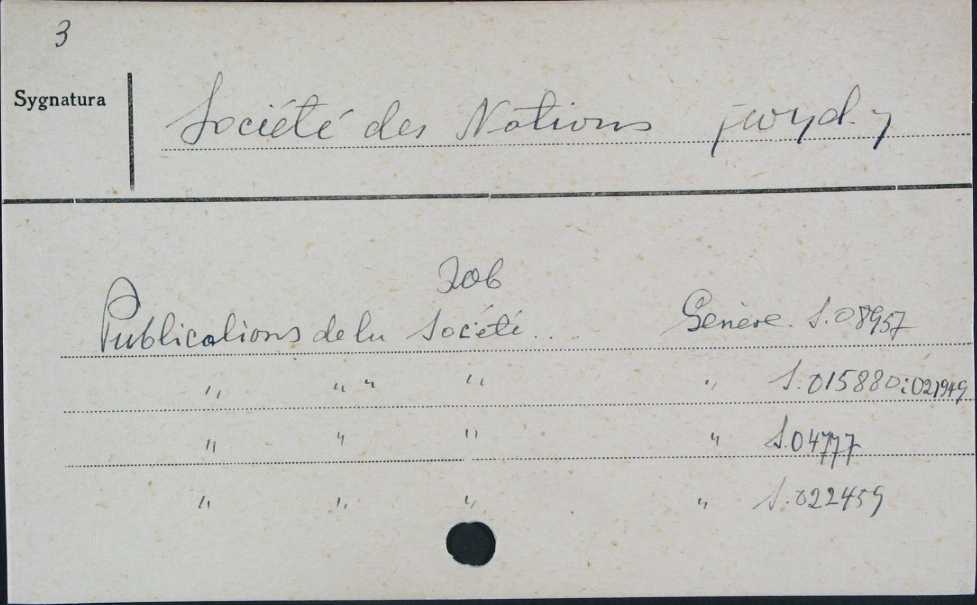 3
Sygnatura
Société des Nations (wyd.)
Zob
Publications de la Société... Genève. S.08957
" " " " " S.015880 i 021949
" " " " S.04777
" " " " S.022459